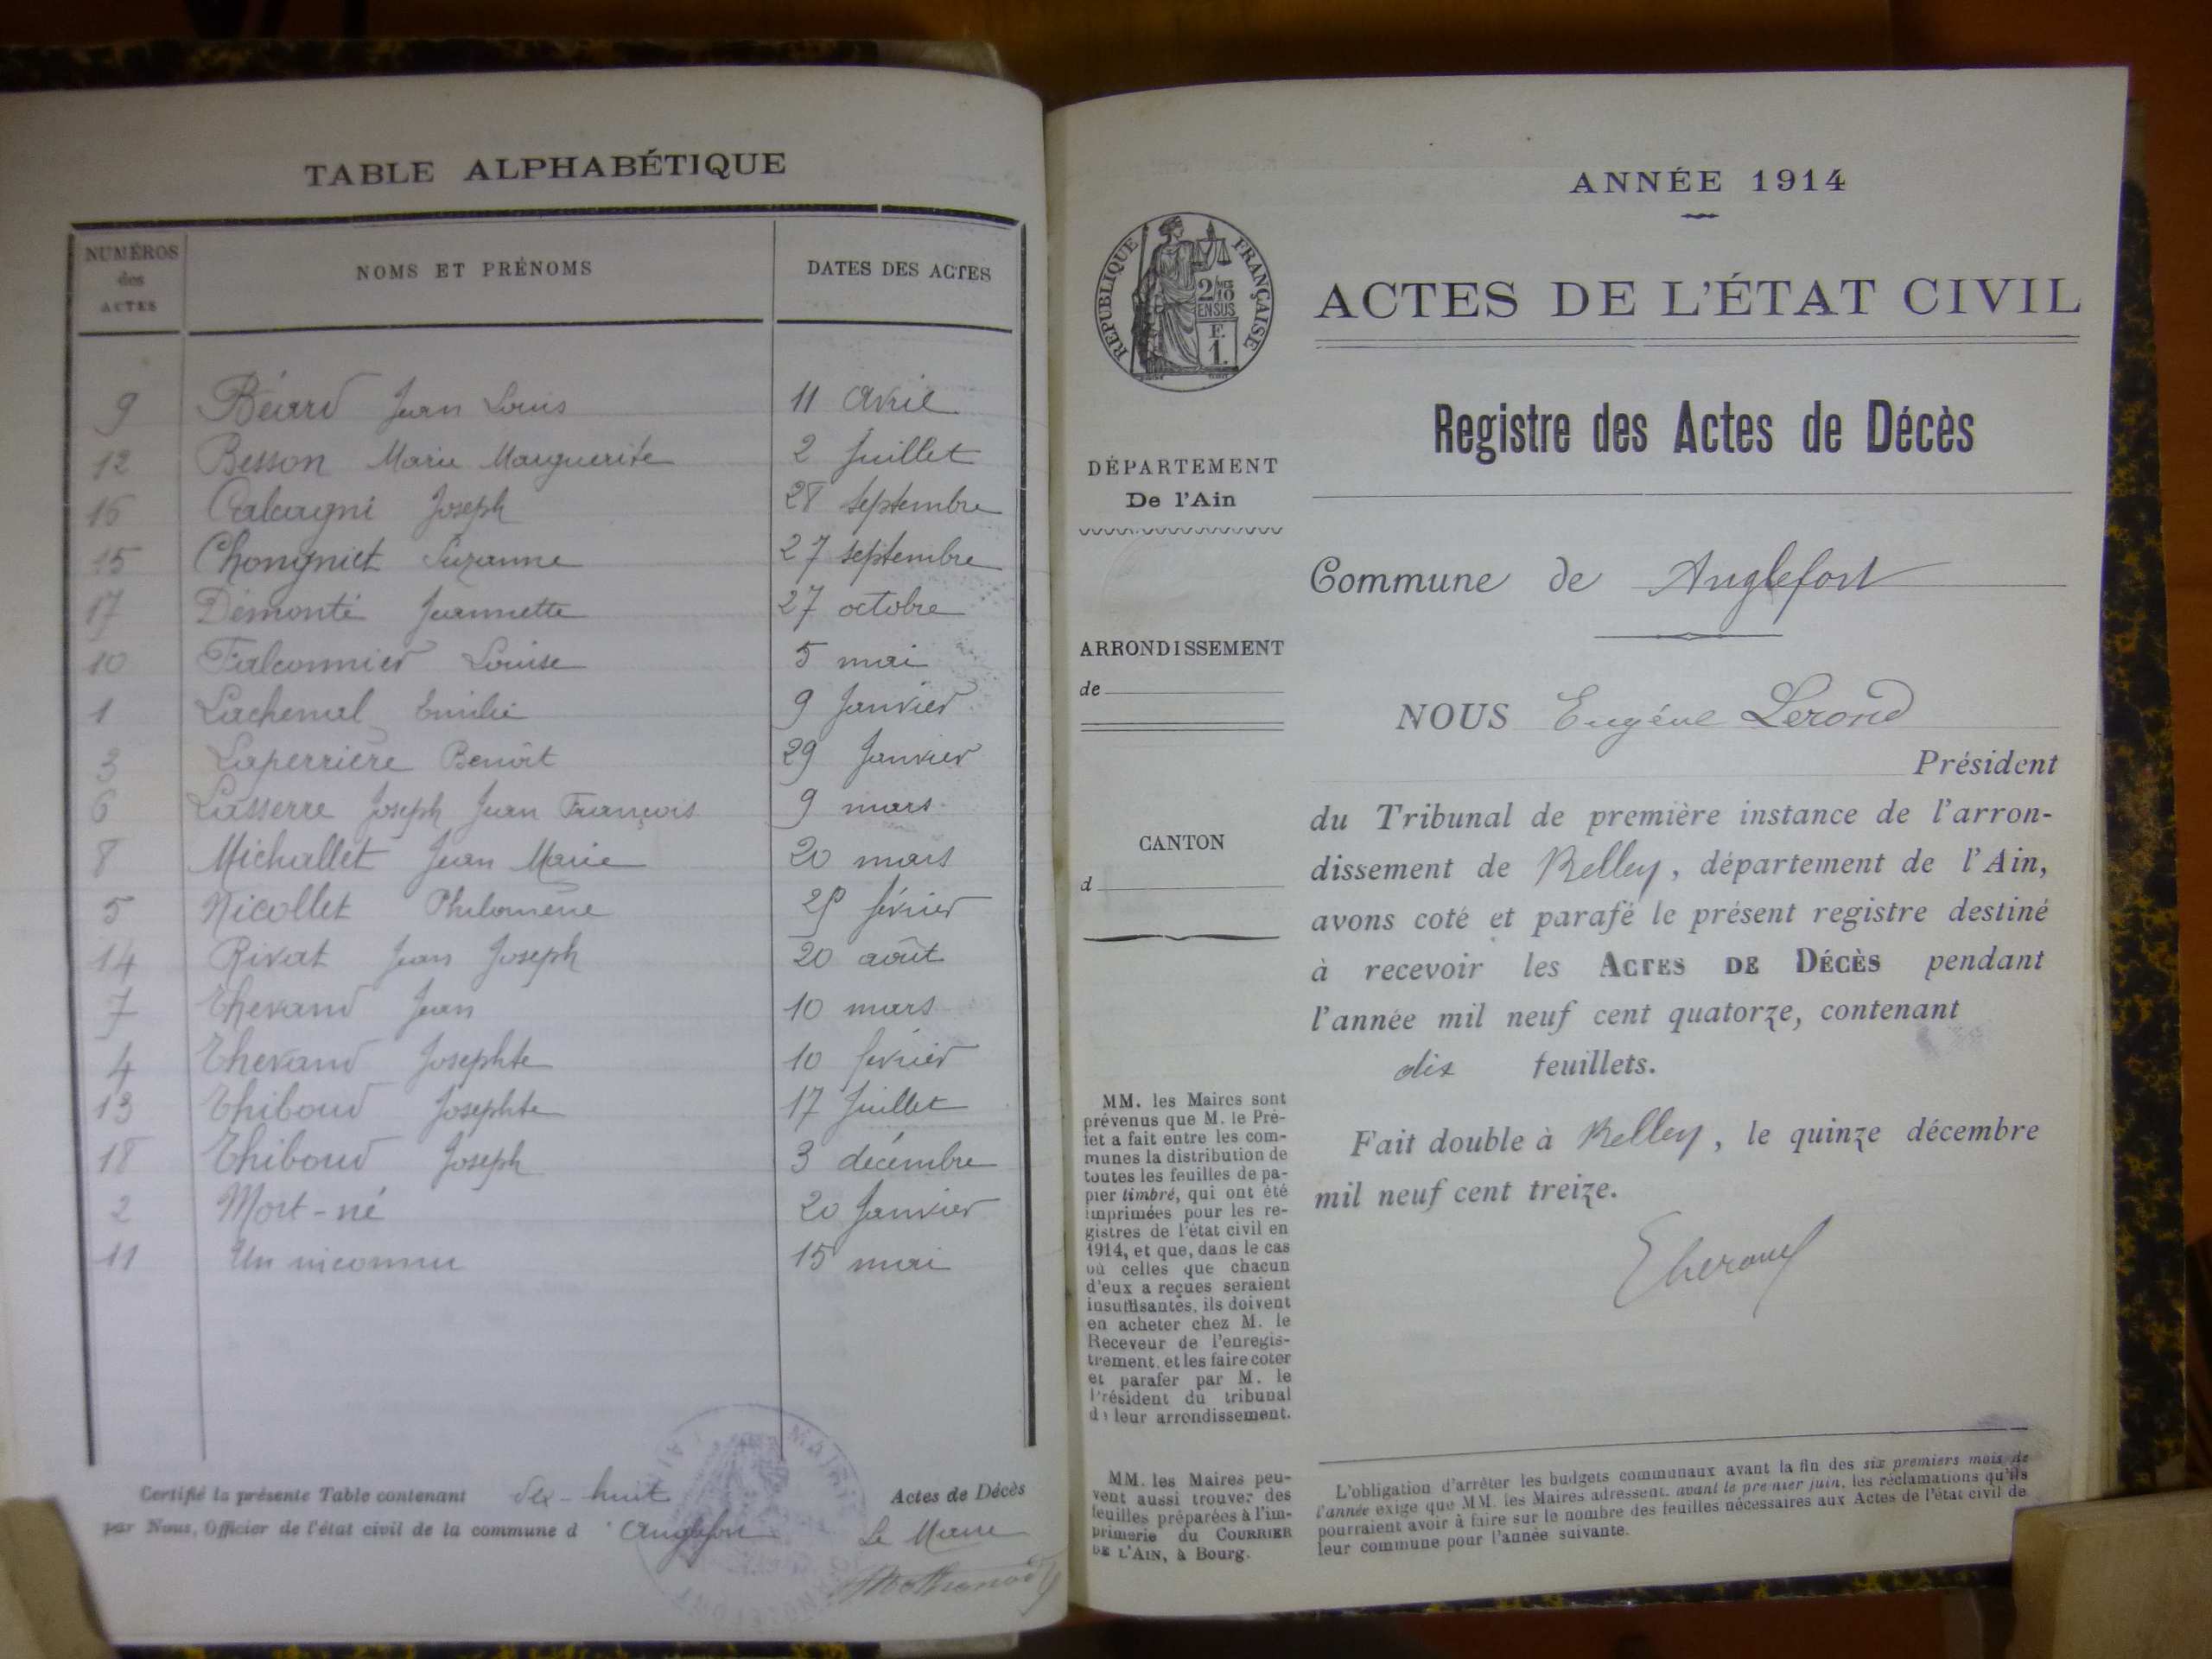 TABLE ALPHABÉTIQUE
NUMÉROS des ACTES NOMS ET PRÉNOMS DATES DES ACTES
9 Béard Jean Louis 11 avril
12 Besson Marie Marguerite 2 Juillet
16 Calcagni Joseph 28 septembre
15 Chongniet Suzanne 27 septembre
17 Démonté Jeannette 27 octobre
10 Falconnier Louise 5 mai
1 Lachenal Emilie 9 Janvier
3 Laperrière Benoît 29 Janvier
6 Lasserre Joseph Jean François 9 mars
8 Michallet Jean Marie 20 mars
5 Nicollet Philomène février
14 Rivat Jean Joseph 20 août
7 Thevand Jean 10 mars
4 Thevand Josephte 10 février
13 Thiboud Josephte 17 Juillet
18 Thiboud Joseph 3 décembre
2 Mort-né 20 Janvier
11 Un inconnu 15 mai
Certifié la présente Table contenant dix-huit Actes de Décès
par Nous, Officier de l'état civil de la commune d'Anglefort Le Maire
ANNÉE 1914
RÉPUBLIQUE FRANÇAISE
2/10
EN SUS
F.
1.
ACTES DE L'ÉTAT CIVIL
Registre des Actes de Décès
DÉPARTEMENT
De l'Ain
Commune de Anglefort
ARRONDISSEMENT
de
NOUS Eugène Lerond
Président
du Tribunal de première instance de l'arron-
dissement de Belley, département de l'Ain,
avons coté et parafé le présent registre destiné
à recevoir les ACTES DE DÉCÈS pendant
l'année mil neuf cent quatorze, contenant
dix feuillets.
Fait double à Belley, le quinze décembre
mil neuf cent treize.
CANTON
d
MM. les Maires sont
prévenus que M. le Pré-
fet a fait entre les com-
munes la distribution de
toutes les feuilles de pa-
pier timbré, qui ont été
imprimées pour les re-
gistres de l'état civil en
1914, et que, dans le cas
où celles que chacun
d'eux a reçues seraient
insuffisantes, ils doivent
en acheter chez M. le
Receveur de l'enregis-
trement, et les faire coter
et parafer par M. le
Président du tribunal
de leur arrondissement.
MM. les Maires peu-
vent aussi trouver des
feuilles préparées à l'im-
primerie du COURRIER
DE L'AIN, à Bourg.
L'obligation d'arrêter les budgets communaux avant la fin des six premiers mois de
l'année exige que MM. les Maires adressent, avant le premier juin, les réclamations qu'ils
pourraient avoir à faire sur le nombre des feuilles nécessaires aux Actes de l'état civil de
leur commune pour l'année suivante.